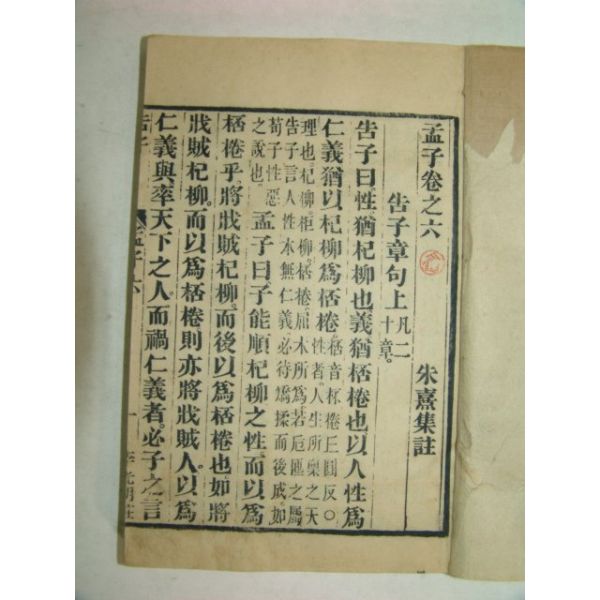 孟子卷之六
朱熹集註
告子章句上凡二十章。
告子曰。性猶杞柳也義猶桮棬也以人性爲
仁義猶以杞柳爲桮棬桮音杯棬丘圓反〇性者。人生所稟之天
理也。杞柳。柜柳。桮棬。屈木所爲。若卮匜之屬
告子言人性本無仁義必待矯揉而後成。如
荀子性惡之說也。孟子曰。子能順杞柳之性而以爲
桮棬乎將戕賊杞柳。而後以爲桮棬也如將
戕賊杞柳。而以爲桮棬則亦將戕賊人。以爲
仁義與。率天下之人。而禍仁義者。必子之言
告子
孟子六
一